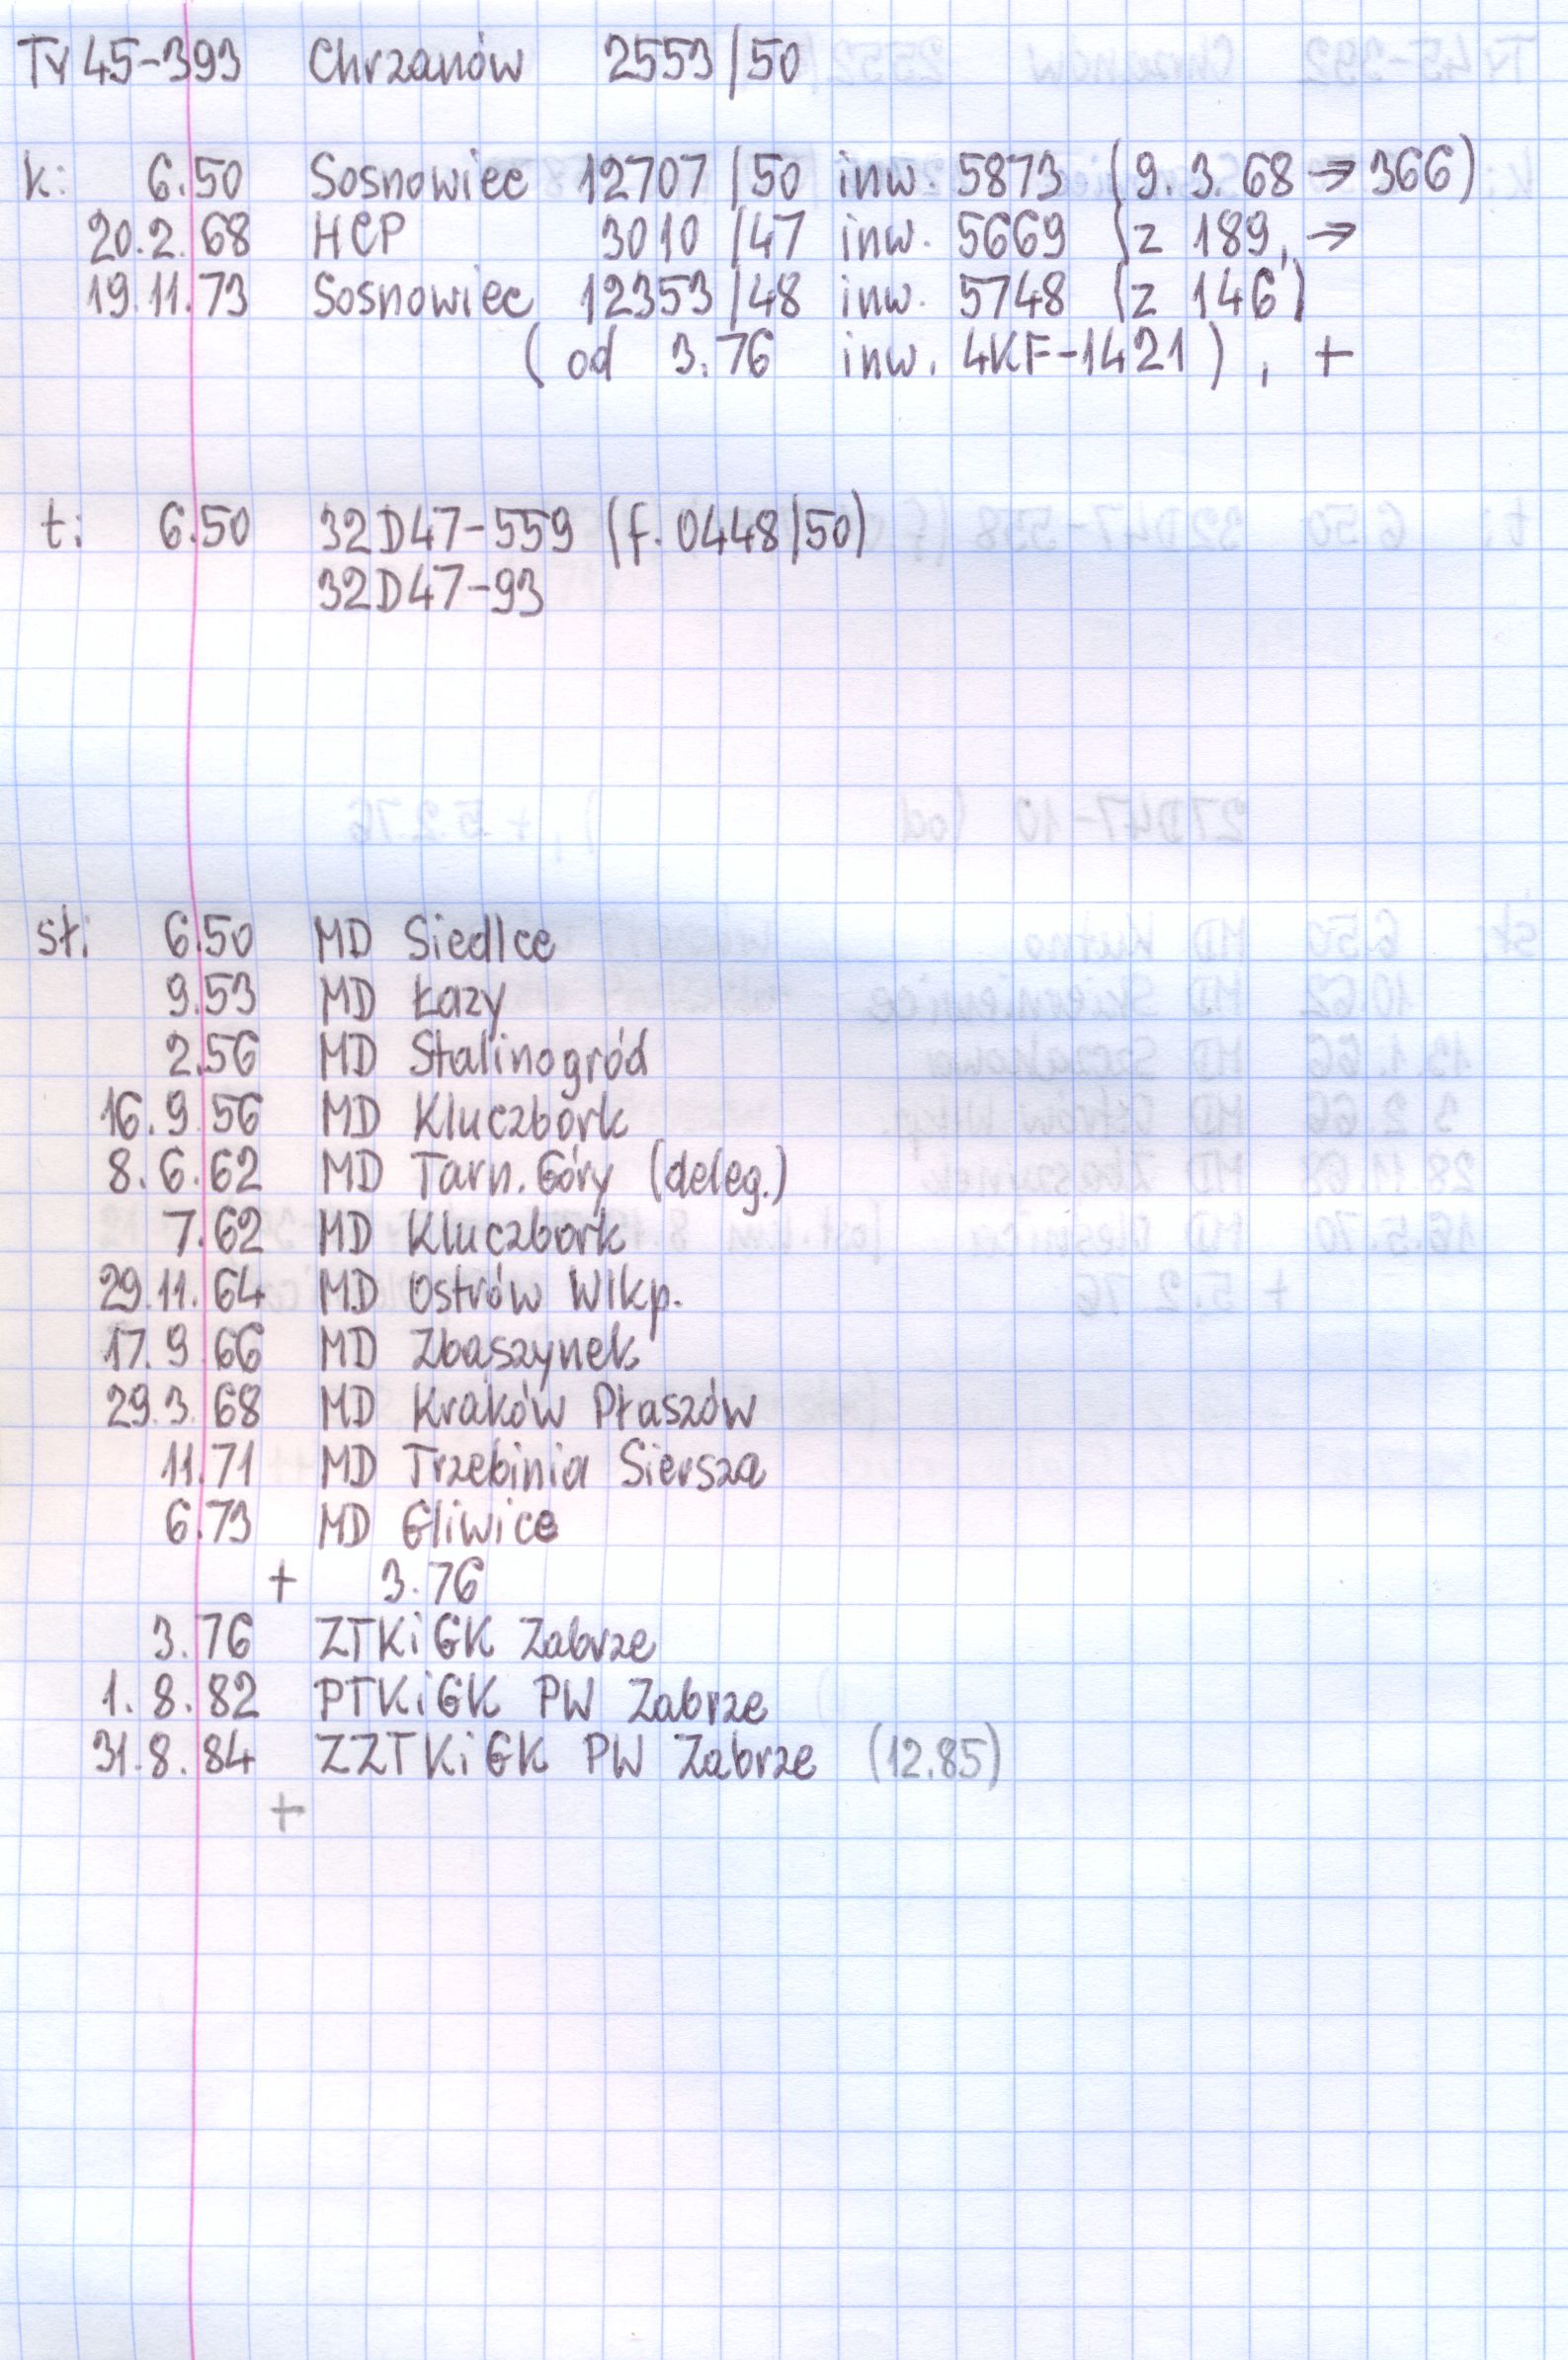 Ty45-393 Chrzanów 2553/50
k: 6.50 Sosnowiec 12707/50 inw. 5873 (9.3.68 → 366)
20.2.68 HCP 3010/47 inw. 5669 (z 189, →
19.11.73 Sosnowiec 12353/48 inw. 5748 (z 146)
(od 3.76 inw. 4KF-1421), +
t: 6.50 32D47-559 (f. 0448/50)
32D47-93
st: 6.50 MD Siedlce
9.53 MD Łazy
2.56 MD Stalinogród
16.9.56 MD Kluczbork
8.6.62 MD Tarn. Góry (deleg.)
7.62 MD Kluczbork
29.11.64 MD Ostrów Wlkp.
17.9.66 MD Zbąszynek
29.3.68 MD Kraków Płaszów
11.71 MD Trzebinia Siersza
6.73 MD Gliwice
+ 3.76
3.76 ZTKiGK Zabrze
1.8.82 PTKiGK PW Zabrze
31.8.84 ZZTKiGK PW Zabrze (12.85)
+